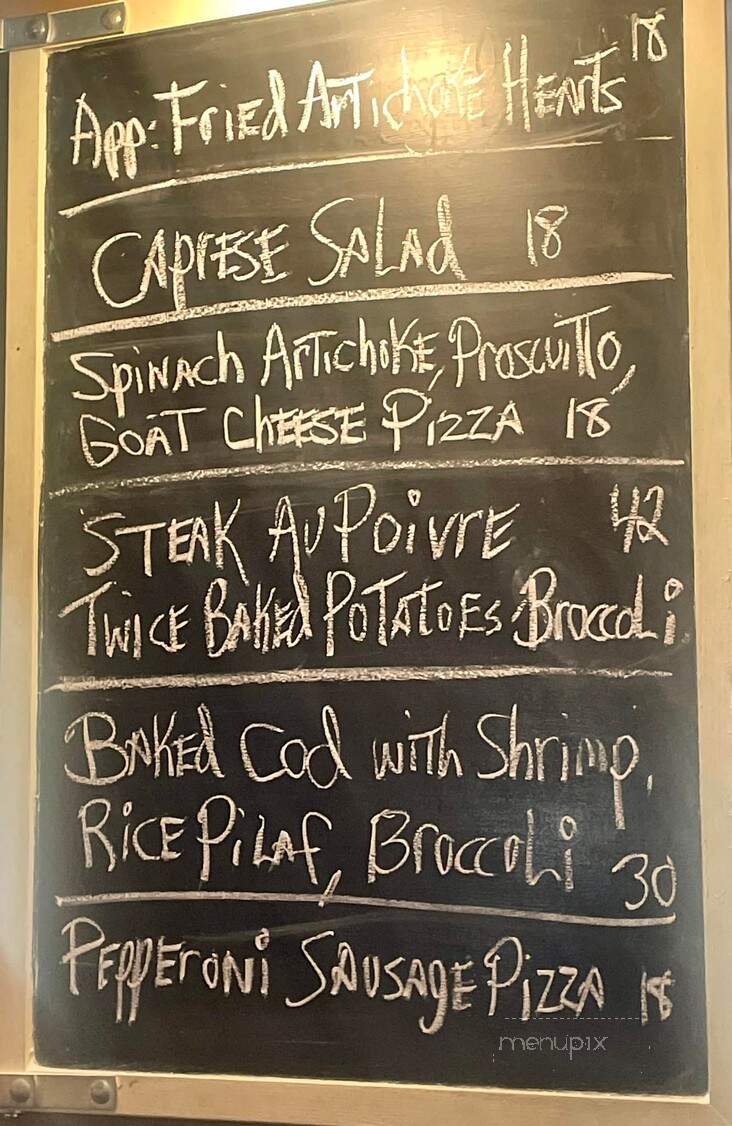 App: Fried Artichoke Hearts 18
Caprese Salad 18
Spinach Artichoke, Proscuitto,
Goat Cheese Pizza 18
Steak Au Poivre 42
Twice Baked Potatoes, Broccoli
Baked Cod with Shrimp,
Rice Pilaf, Broccoli 30
Pepperoni Sausage Pizza 18
menupix